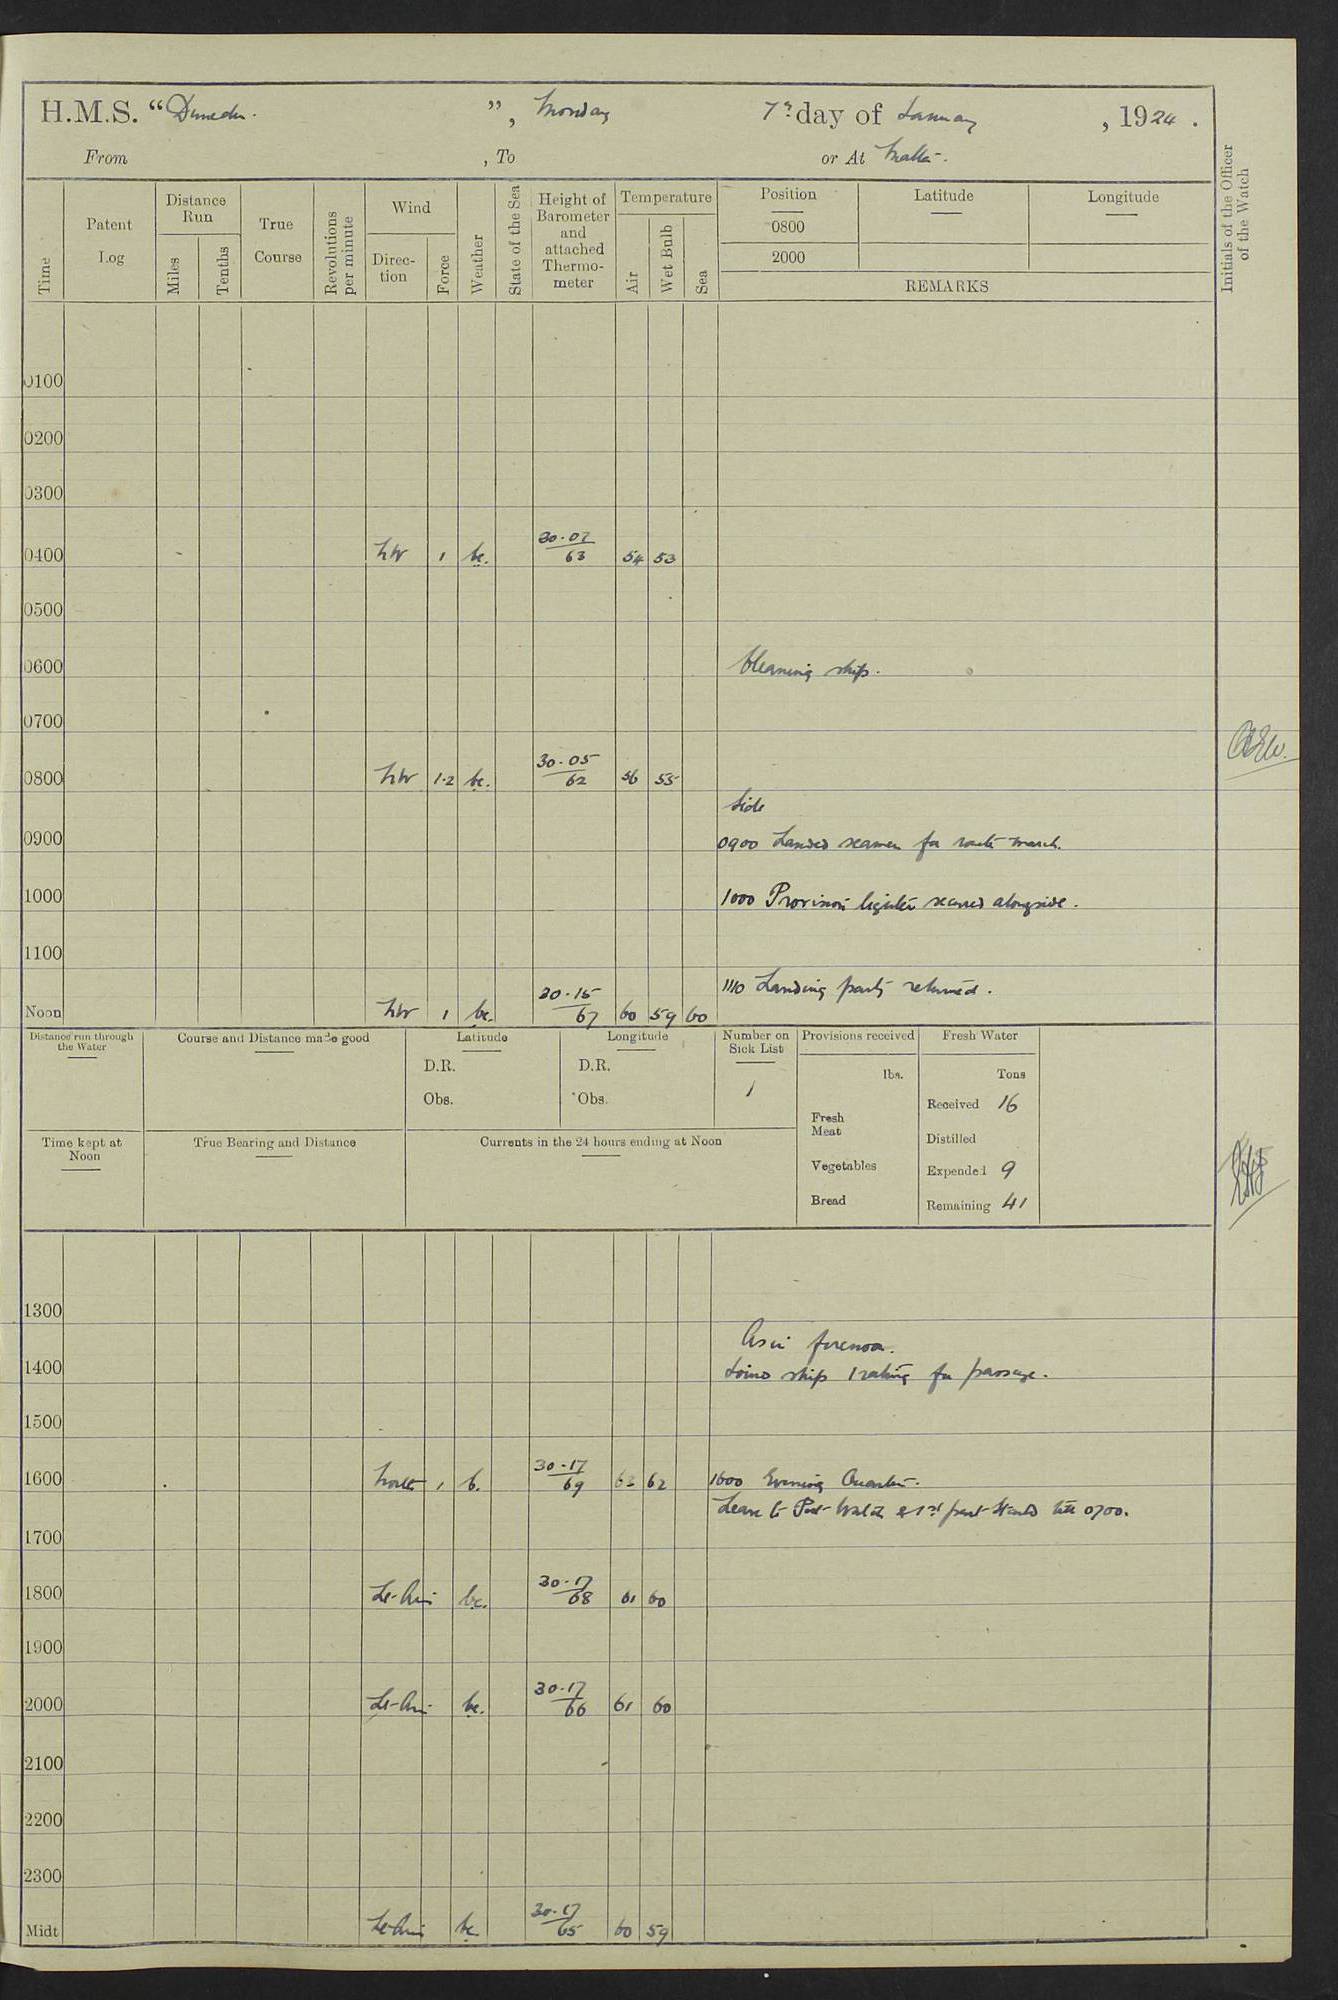 H.M.S. "Dunedin.", Monday 7th day of January, 1924.
From , To or At Malta.
Time
Patent Log
Distance Run
Miles
Tenths
True Course
Revolutions per minute
Wind
Direction
Force
Weather
State of the Sea
Height of Barometer and attached Thermometer
Temperature
Air
Wet Bulb
Sea
Position
0800
2000
Latitude
Longitude
REMARKS
Initials of the Officer of the Watch
0100
0200
0300
0400 NW 1 bc. 30.07 63 54 53
0500
0600 Cleaning ship.
0700
0800 NW 1.2 bc. 30.05 62 56 55
Side
0900 0900 Landed seamen for route march.
1000 1000 Provision lighter secured alongside.
1100
1110 Landing party returned.
Noon NW 1 bc. 30.15 67 60 59 60
Distance run through the Water
Course and Distance made good
Latitude
D.R.
Obs.
Longitude
D.R.
Obs.
Number on Sick List
1
Provisions received
lbs.
Fresh Meat
Vegetables
Bread
Fresh Water
Tons
Received 16
Distilled
Expended 9
Remaining 41
Time kept at Noon
True Bearing and Distance
Currents in the 24 hours ending at Noon
1300
As in forenoon.
1400 Joined ship 1 rating for passage.
1500
1600 North 1 b. 30.17 69 63 62 1600 Evening Quarters.
Leave to Port Watch & 1st part Starbd till 0700.
1700
1800 Lt-Airs bc. 30.17 68 61 60
1900
2000 Lt-Airs bc. 30.17 66 61 60
2100
2200
2300
Midt Lt-Airs bc 30.17 65 60 59